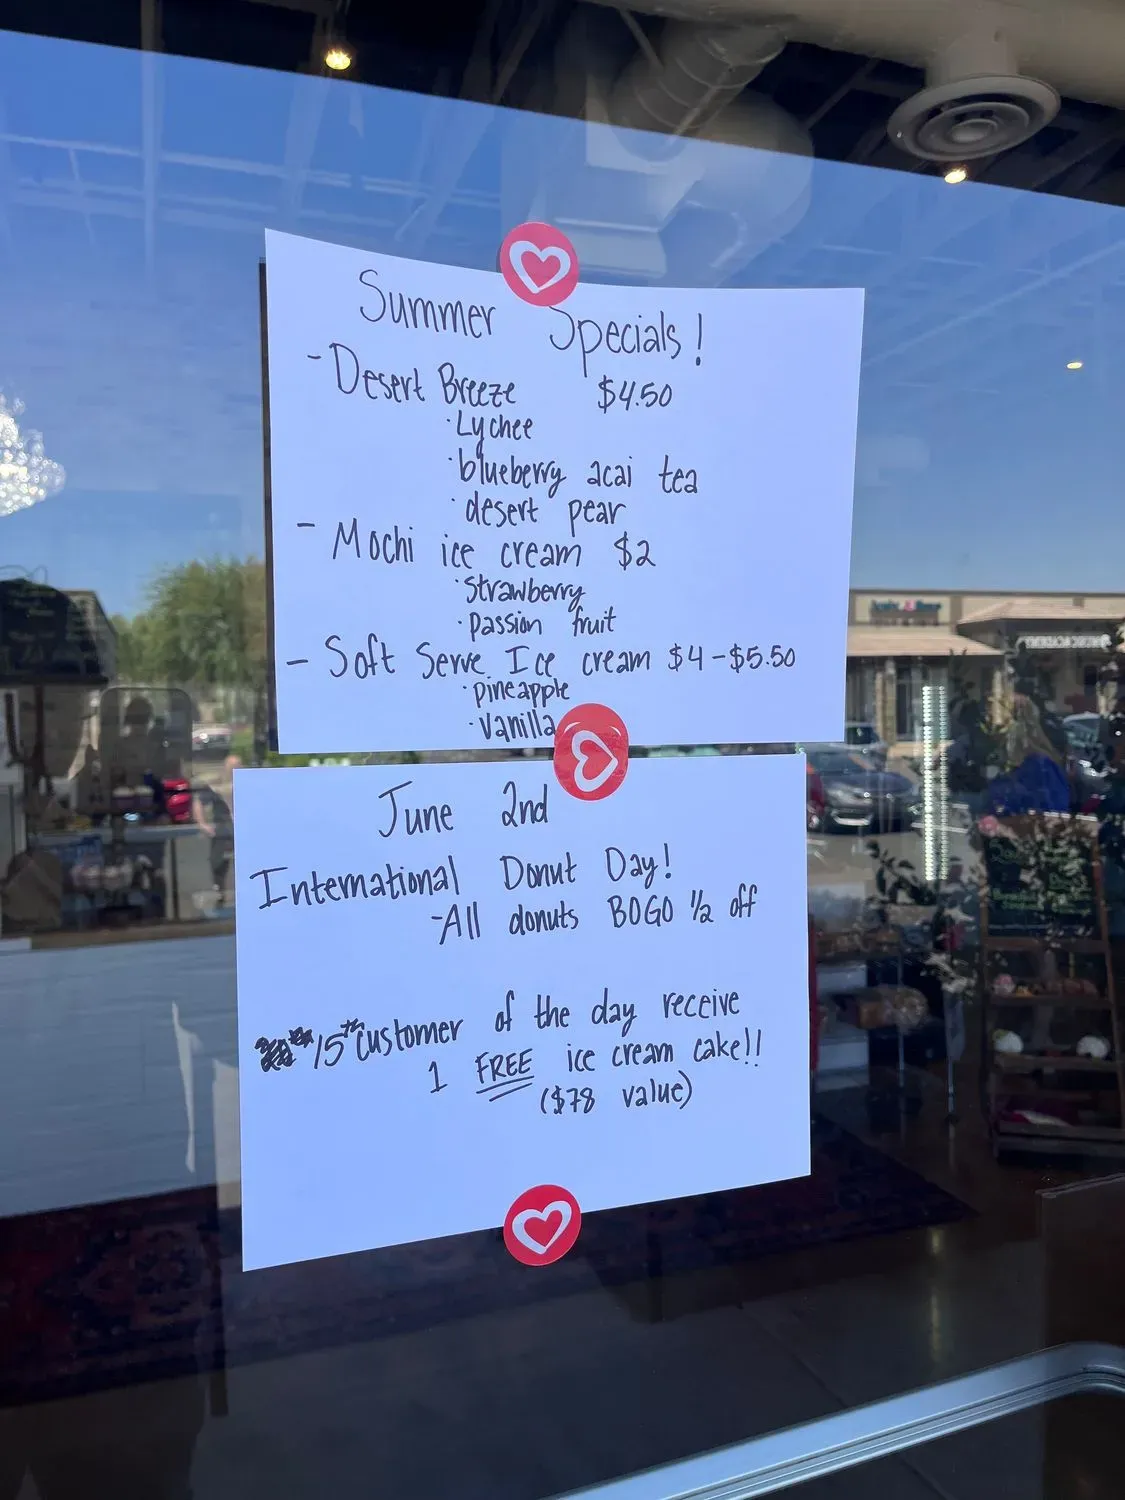 Summer Specials!
- Desert Breeze $4.50
· Lychee
· blueberry acai tea
· desert pear
- Mochi ice cream $2
· Strawberry
· passion fruit
- Soft Serve Ice cream $4-$5.50
· pineapple
· vanilla
June 2nd
International Donut Day!
- All donuts BOGO 1/2 off
15th customer of the day receive
1 FREE ice cream cake!!
($78 value)